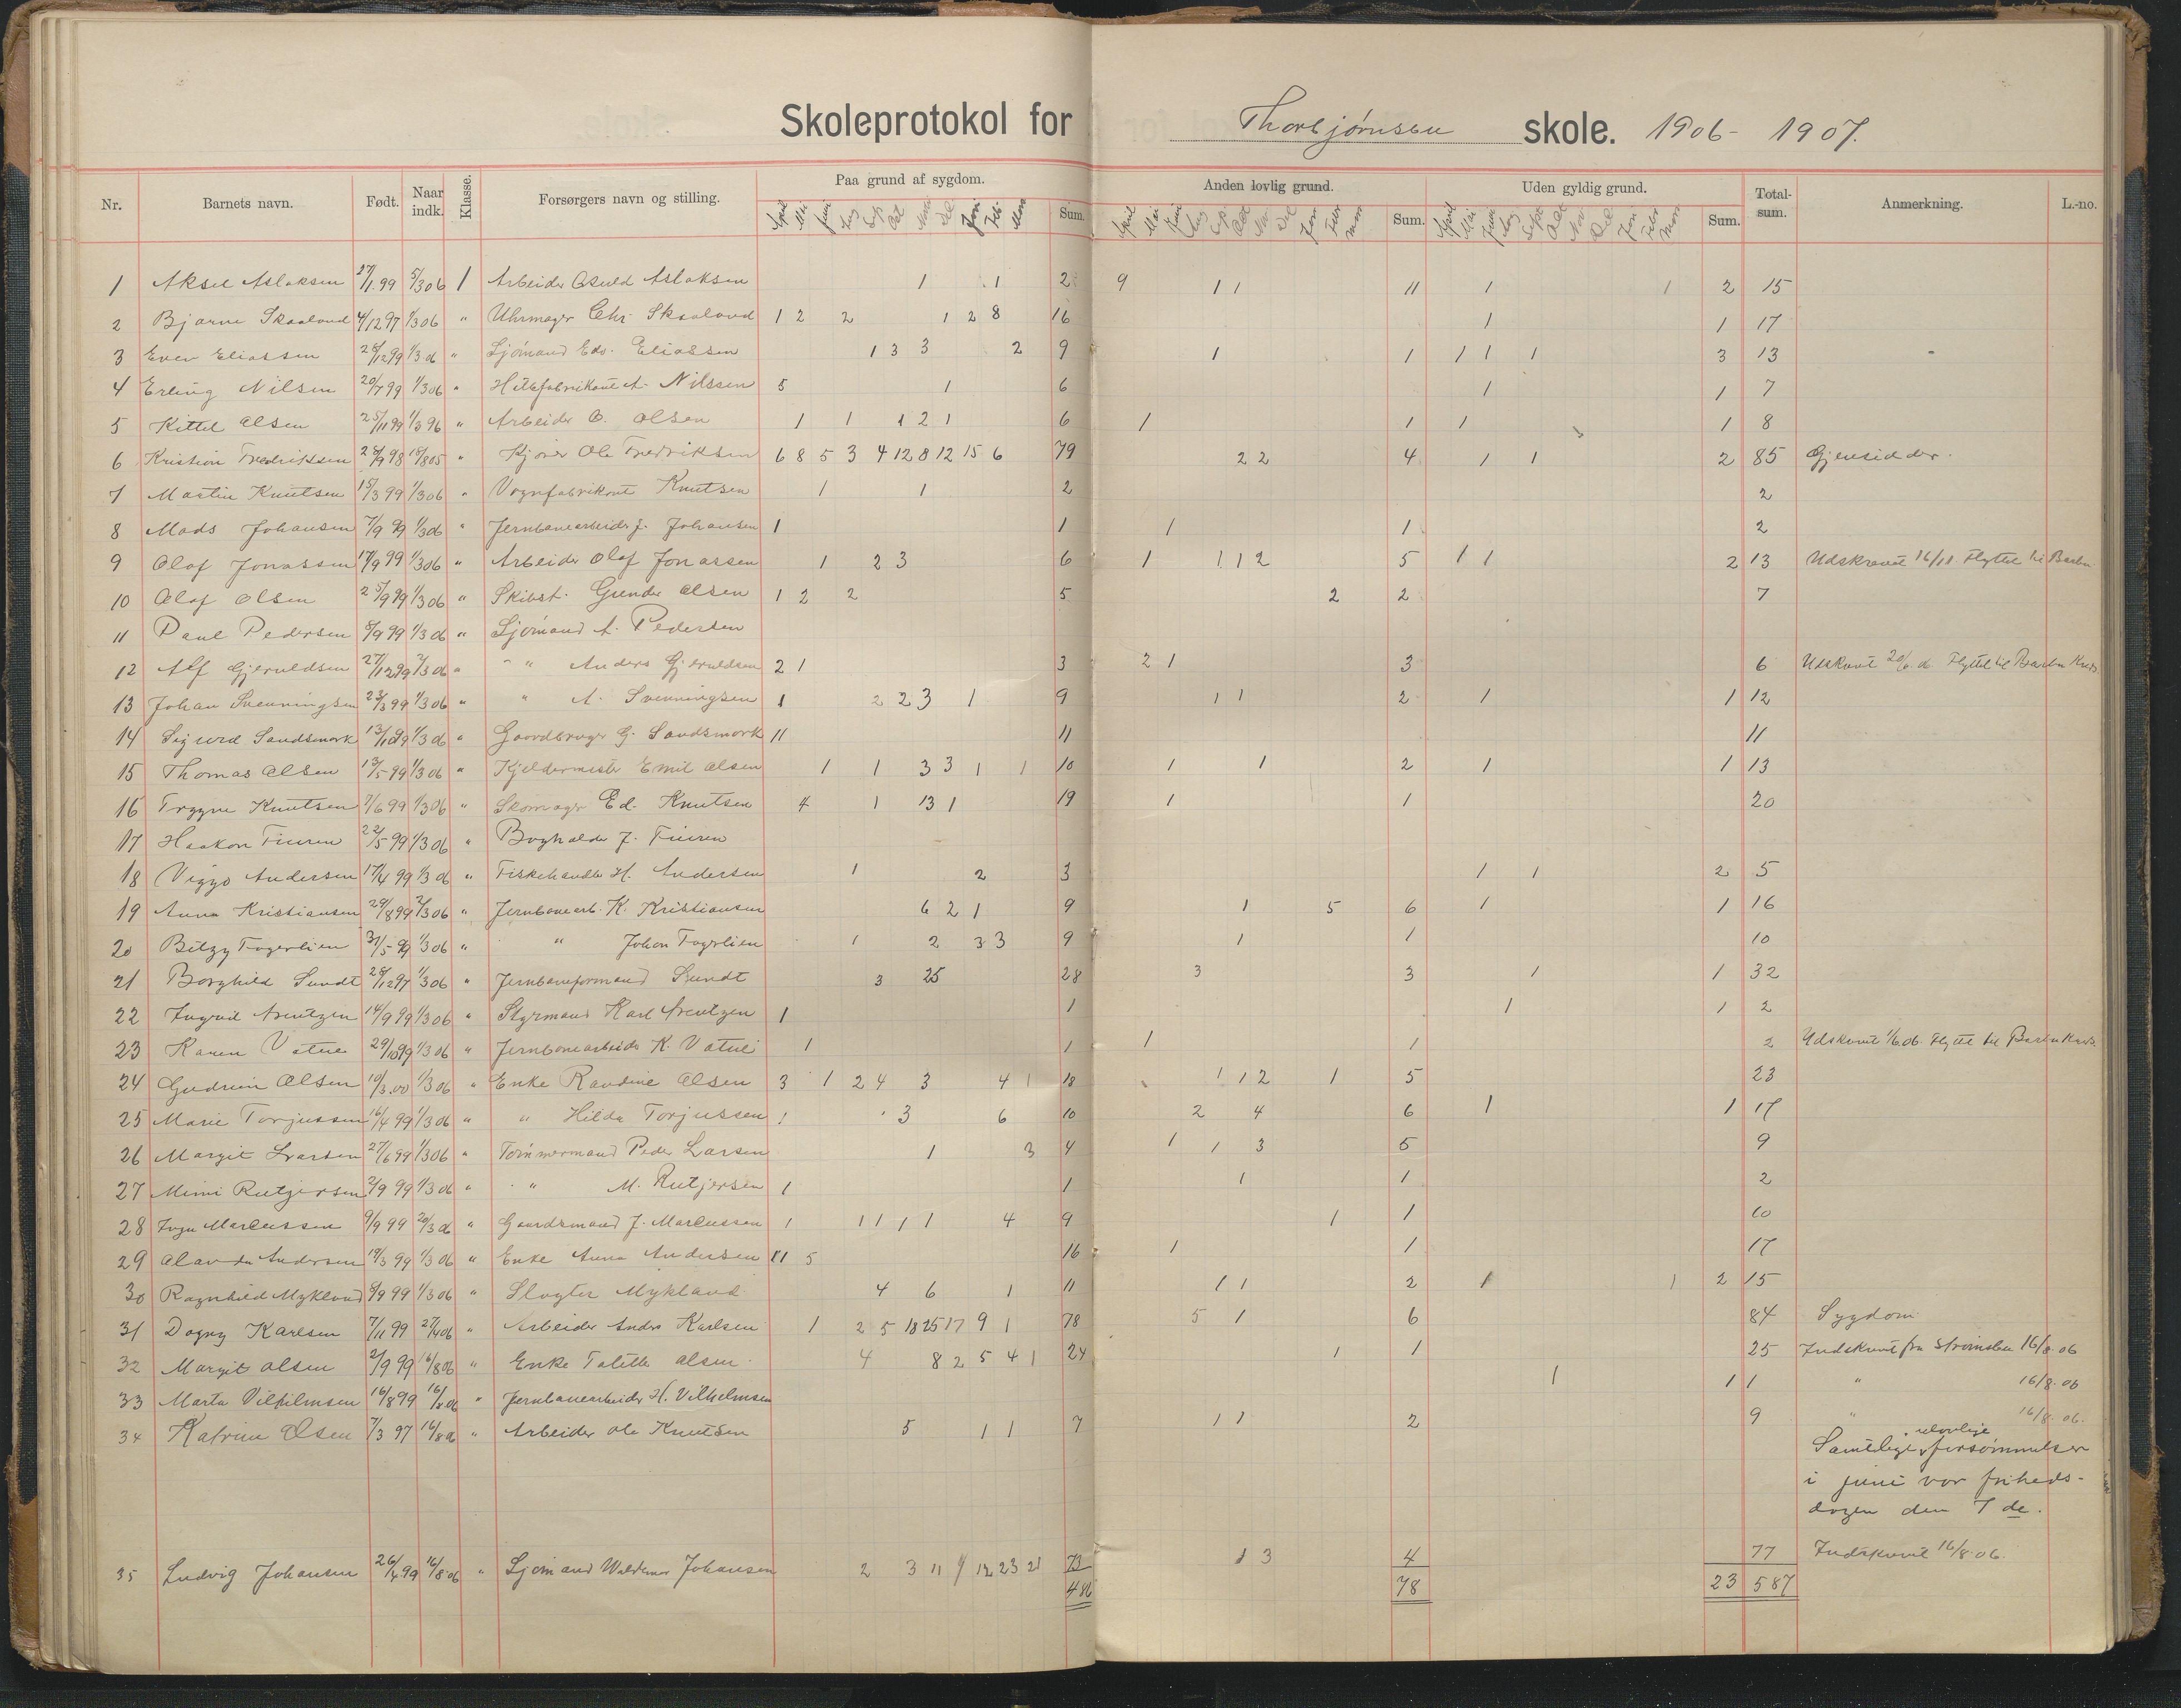 Skoleprotokol for Thorbjørnsbu skole. 1906- 1907.
Nr. Barnets navn. Født. Naar indk. Klasse. Forsørgers navn og stilling. Paa grund af sygdom. Sum. Anden lovlig grund. Sum. Uden gyldig grund. Sum. Total-sum. Anmerkning. L.-no.
April Mai Juni Aug Sep. Okt Nov Des Jan Feb. Mars April Mai Juni Aug Sep. Okt Nov Des Jan Febr Mars April Mai Juni Aug Sept Okt Nov Des Jan Febr Mars
1 Aksel Aslaksen 27/1.99 5/306 1 Arbeider Osuld Aslaksen 1 1 2 9 1 1 11 1 1 2 15
2 Bjarne Skaaland 4/1297 1/306 " Uhrmager Chr. Skaaland 1 2 2 1 2 8 16 1 1 17
3 Even Eliassen 28/1299 1/306 " Sjømand Edv. Eliassen 1 3 3 2 9 1 1 1 1 1 3 13
4 Erling Nilsen 20/799 1/306 " A. Nilssen 5 1 6 1 1 7
5 Kittel Olsen 25/1199 1/396 " Arbeider O. Olsen 1 1 1 2 1 6 1 1 1 1 8
6 Kristian Fredriksen 28/998 15/805 " Kjører Ole Fredriksen 6 8 5 3 4 12 8 12 15 6 79 2 2 4 1 1 2 85 Gjensidder.
7 Martin Knutsen 15/399 1/306 " Vognfabrikant Knutsen 1 1 2 2
8 Mads Johansen 7/9 99 1/306 " Jernbanearbeider J. Johansen 1 1 1 1 2
9 Olaf Jonassen 17/999 1/306 " Arbeider Olaf Jonassen 1 2 3 6 1 1 1 2 5 1 1 2 13 Udskrevet 16/11. Flyttet til Barbu
10 Olaf Olsen 25/999 1/306 " Skibst. Gunder Olsen 1 2 2 5 2 2 7
11 Paul Pedersen 5/999 1/306 " Sjømand A. Pedersen
12 Alf Gjeruldsen 27/1299 2/306 " " Anders Gjeruldsen 2 1 3 2 1 3 6 Udskrevet 20/6.06 Flyttet til Barbu Kreds.
13 Johan Svenningsen 23/399 1/306 " " A. Svenningsen 1 2 2 3 1 9 1 1 2 1 1 12
14 Sigurd Sandsmark 13/1299 1/306 " Gaardbruger G. Sandsmark 11 11 11
15 Thomas Olsen 13/5 99 1/306 " Kjeldermester Emil Olsen 1 1 3 3 1 1 10 1 1 2 1 1 13
16 Trygve Knutsen 7/699 1/306 " Skomager Ed. Knutsen 4 1 13 1 19 1 1 20
17 Haakon Fiuren 22/599 1/306 " Bogholder J. Fiuren
18 Viggo Andersen 17/499 1/306 " Fiskehandler H. Andersen 1 2 3 1 1 2 5
19 Anna Kristiansen 29/899 2/306 " Jernbanearb. K. Kristiansen 6 2 1 9 1 5 6 1 1 16
20 Betzy Fagerlien 31/599 1/306 " " Johan Fagerlien 1 2 3 3 9 1 1 10
21 Borghild Sundt 28/1297 1/306 " Jernbaneformand Sundt 3 25 28 3 3 1 1 32
22 Ingrid Arentzen 14/999 1/306 " Styrmand Karl Arentzen 1 1 1 1 2
23 Karen Vatne 29/1099 1/306 " Jernbanearbeider K. Vatne 1 1 1 1 2 Udskrevet 1/6.06. Flyttet til Barbu Kreds.
24 Gudrun Olsen 10/3.00 1/306 " Enke Randine Olsen 3 1 2 4 3 4 1 18 1 1 2 1 5 23
25 Marie Torjussen 16/499 1/306 " " Hilda Torjussen 1 3 6 10 2 4 6 1 1 17
26 Margit Larsen 27/699 1/306 " Tømmermand Peder Larsen 1 3 4 1 1 3 5 9
27 Mimi Rutgersen 2/9 99 1/306 " " M. Rutjersen 1 1 1 1 2
28 Inga Marcussen 9/999 20/306 " Gaardsmand J. Marcussen 1 1 1 1 1 4 9 1 1 10
29 Alavda Andersen 19/399 1/306 " Enke Anna Andersen 11 5 16 1 1 17
30 Ragnhild Mykland 6/999 1/306 " Slagter Mykland 4 6 1 11 1 1 2 1 1 2 15
31 Dagny Karlsen 7/1199 27/406 " Arbeider Anders Karlsen 1 2 5 18 25 17 9 1 78 5 1 6 84 Sygdom
32 Margit Olsen 2/999 16/806 " Enke Tolette Olsen 4 8 2 5 4 1 24 1 1 25 Indskrevet fra Strømsbu 16/8.06
33 Marta Vilhilmsen 16/899 16/8.06 " Jernbanearbeider H. Vilhelmsen 1 1 1 " 16/8.06
34 Katrine Olsen 7/3 97 16/806 " Arbeider Ole Knutsen 5 1 1 7 1 1 2 9 " 16/8.06.
ulovlige
Samtlige forsømmelser
i juni var friheds-
dagen den 7de.
35 Ludvig Johansen 26/499 16/8.06 " Sjømand Waldemar Johansen 2 3 11 9 12 23 21 73 1 3 4 77 Indskrevet 16/8.06.
486 78 23 587